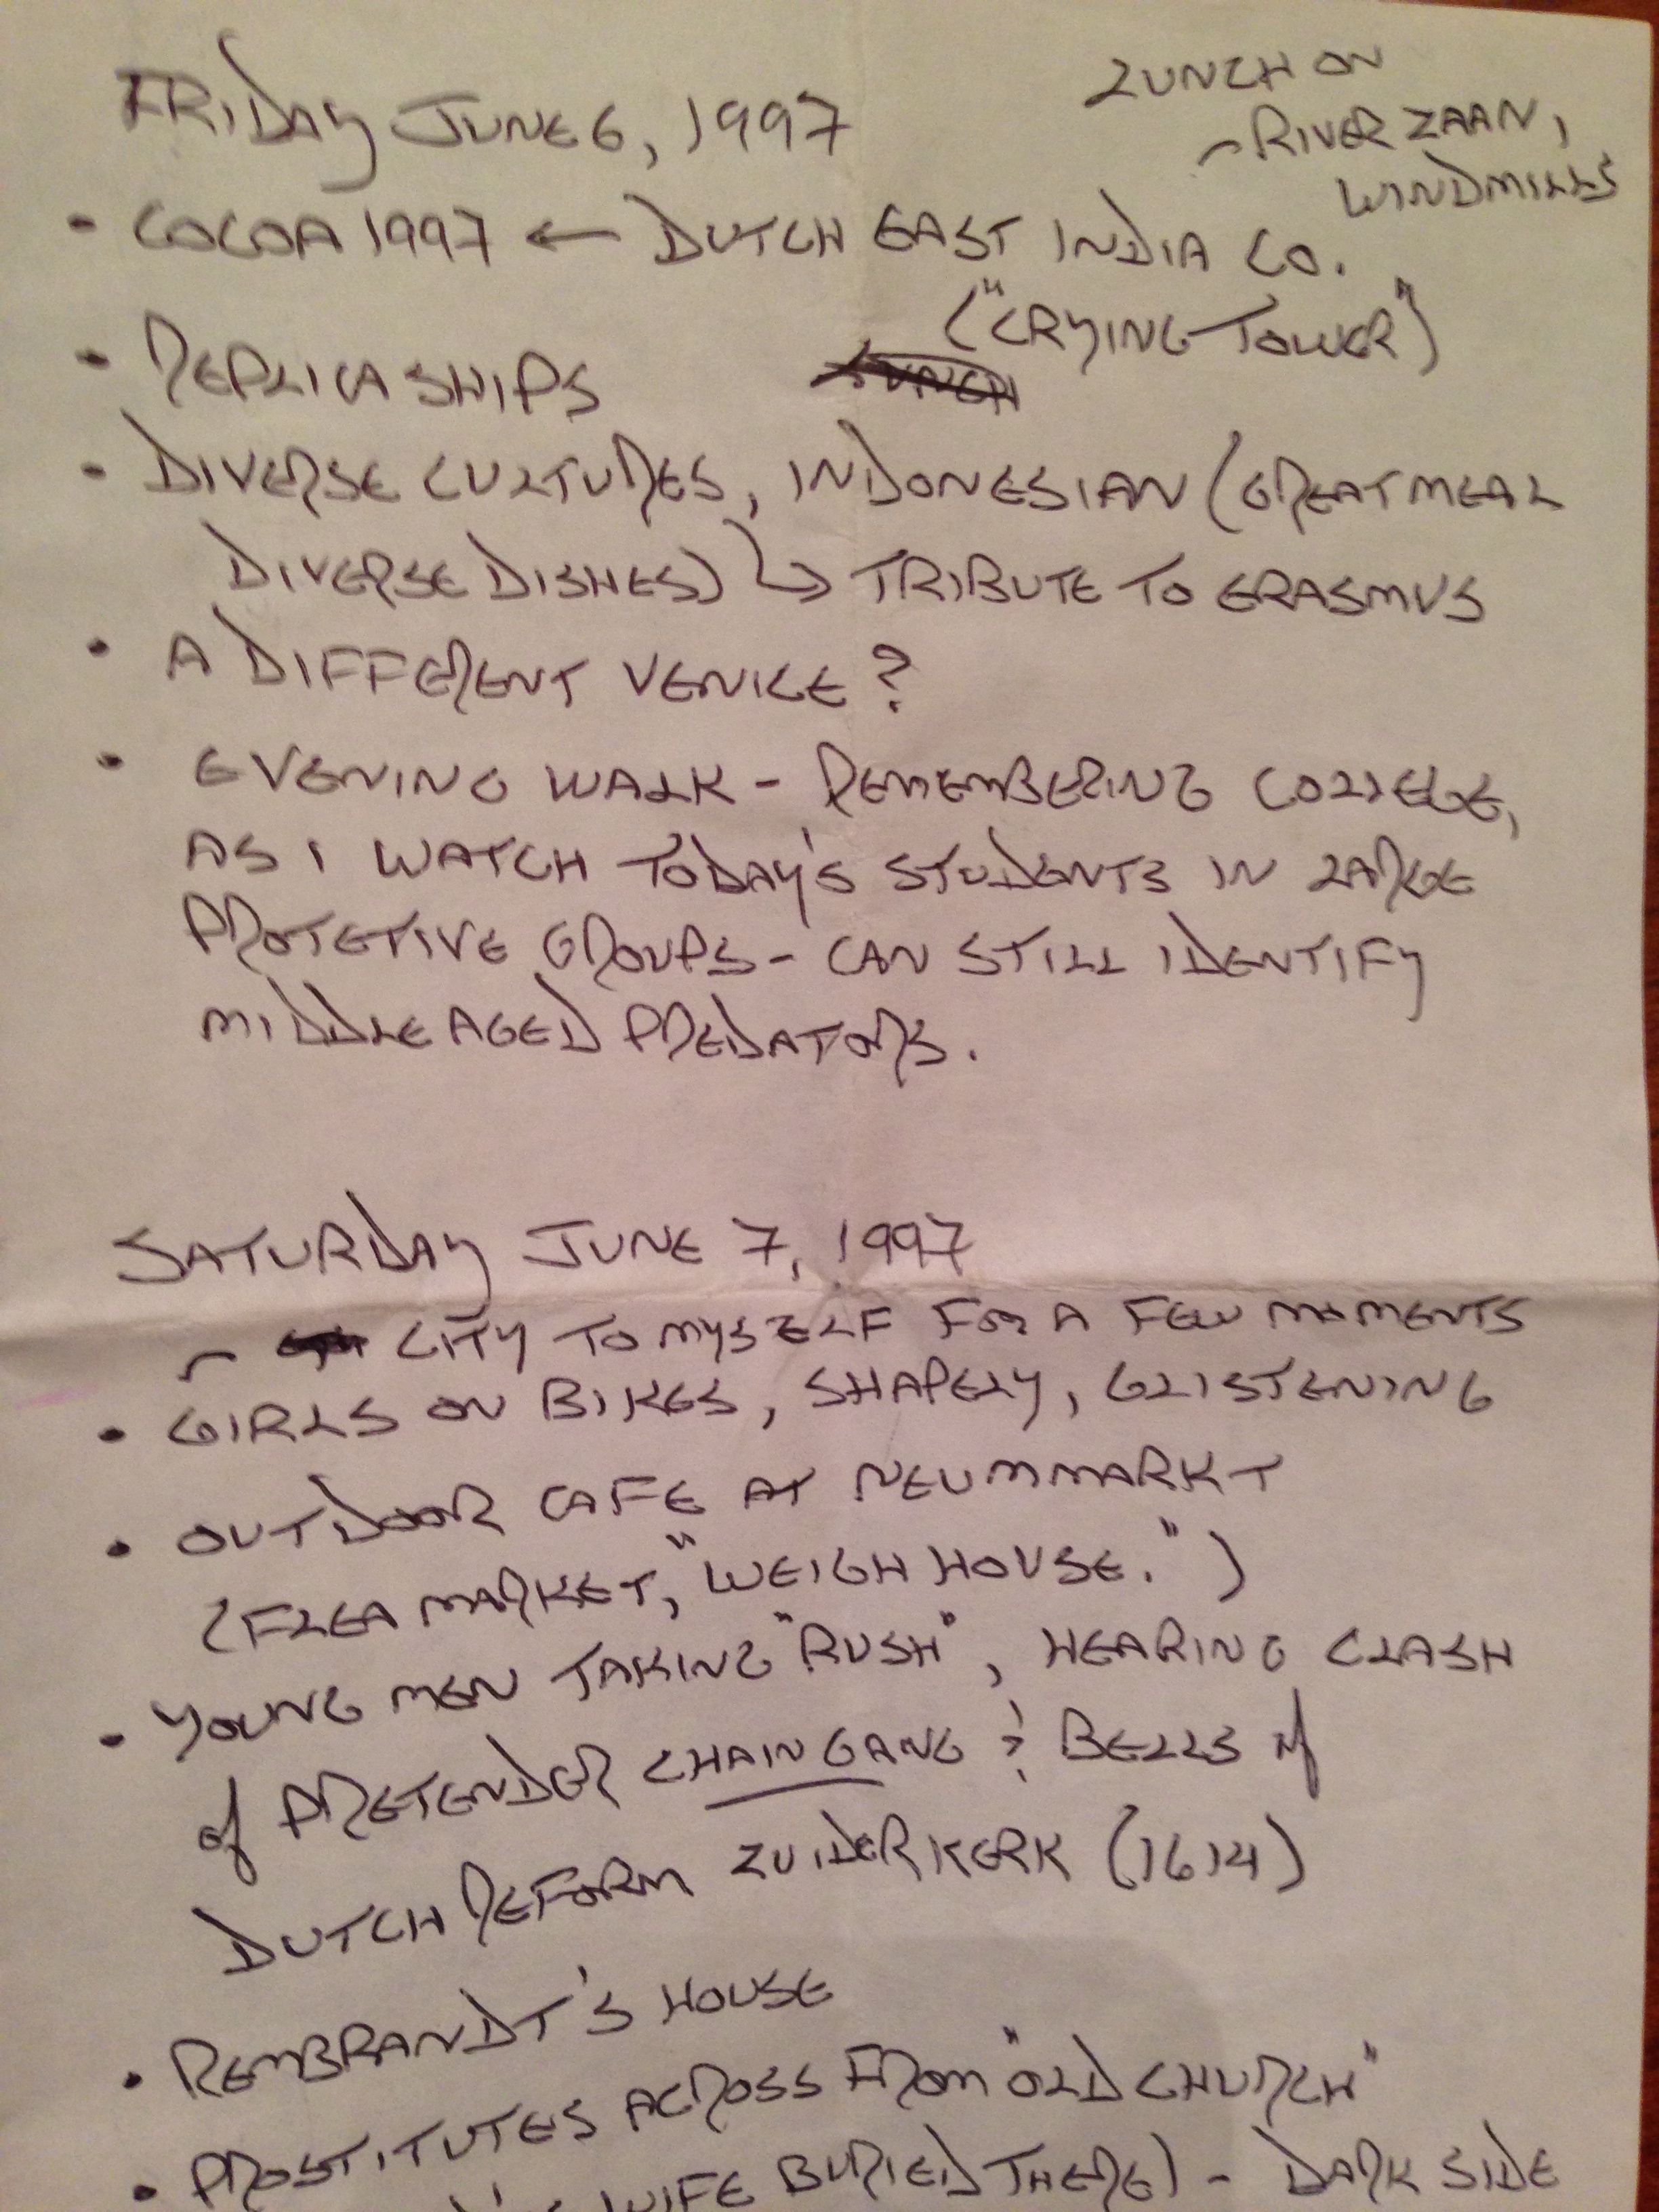 FRIDAY JUNE 6, 1997
LUNCH ON
~ RIVER ZAAN,
WINDMILLS
- COCOA 1997 ← DUTCH EAST INDIA CO.
("CRYING TOWER")
- REPLICA SHIPS
- DIVERSE CULTURES, INDONESIAN (GREAT MEAL
DIVERSE DISHES) ↳ TRIBUTE TO ERASMUS
• A DIFFERENT VENICE?
• EVENING WALK - REMEMBERING COLLEGE,
AS I WATCH TODAY'S STUDENTS IN LARGE
PROTETIVE GROUPS - CAN STILL IDENTIFY
MIDDLE AGED PREDATORS.
SATURDAY JUNE 7, 1997
~ CITY TO MYSELF FOR A FEW MOMENTS
• GIRLS ON BIKES, SHAPELY, GLISTENING
• OUTDOOR CAFE AT NEUMMARKT
(FLEA MARKET, "WEIGH HOUSE.")
• YOUNG MEN TAKING "RUSH", HEARING CLASH
of PRETENDER CHAIN GANG ? BELLS of
DUTCH REFORM ZUIDERKERK (1614)
• REMBRANDT'S HOUSE
• PROSTITUTES ACROSS FROM "OLD CHURCH"
WIFE BURIED THERE) - DARK SIDE